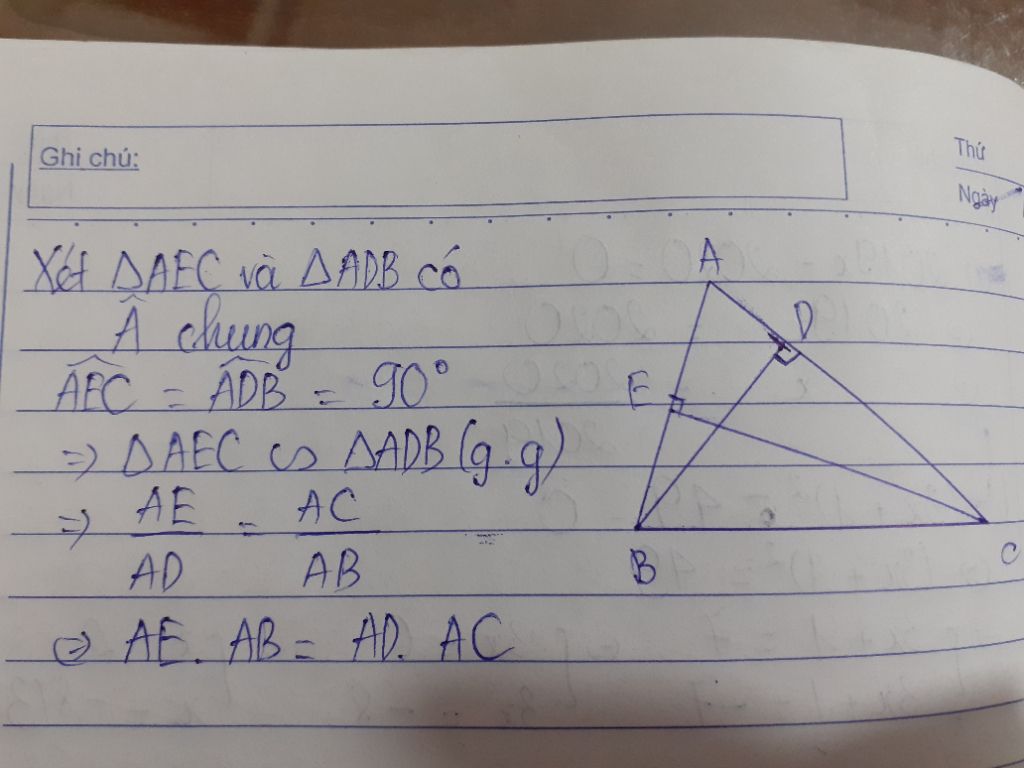 Ghi chú:
Thứ
Ngày
Xét ΔAEC và ΔADB có
Â chung
AEC = ADB = 90°
=> ΔAEC ∽ ΔADB (g.g)
=> AE/AD = AC/AB
<=> AE. AB = AD. AC
A
D
E
B
C